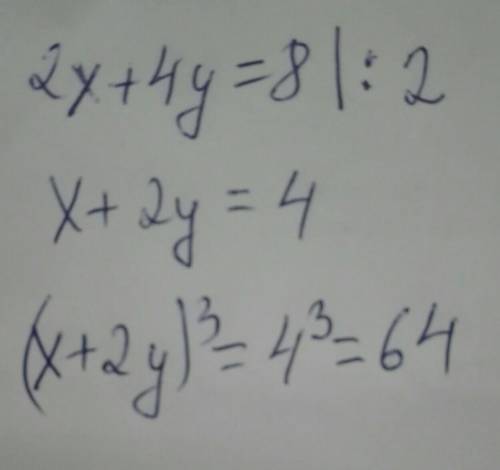 2x+4y=8|:2
x+2y=4
(x+2y)³=4³=64